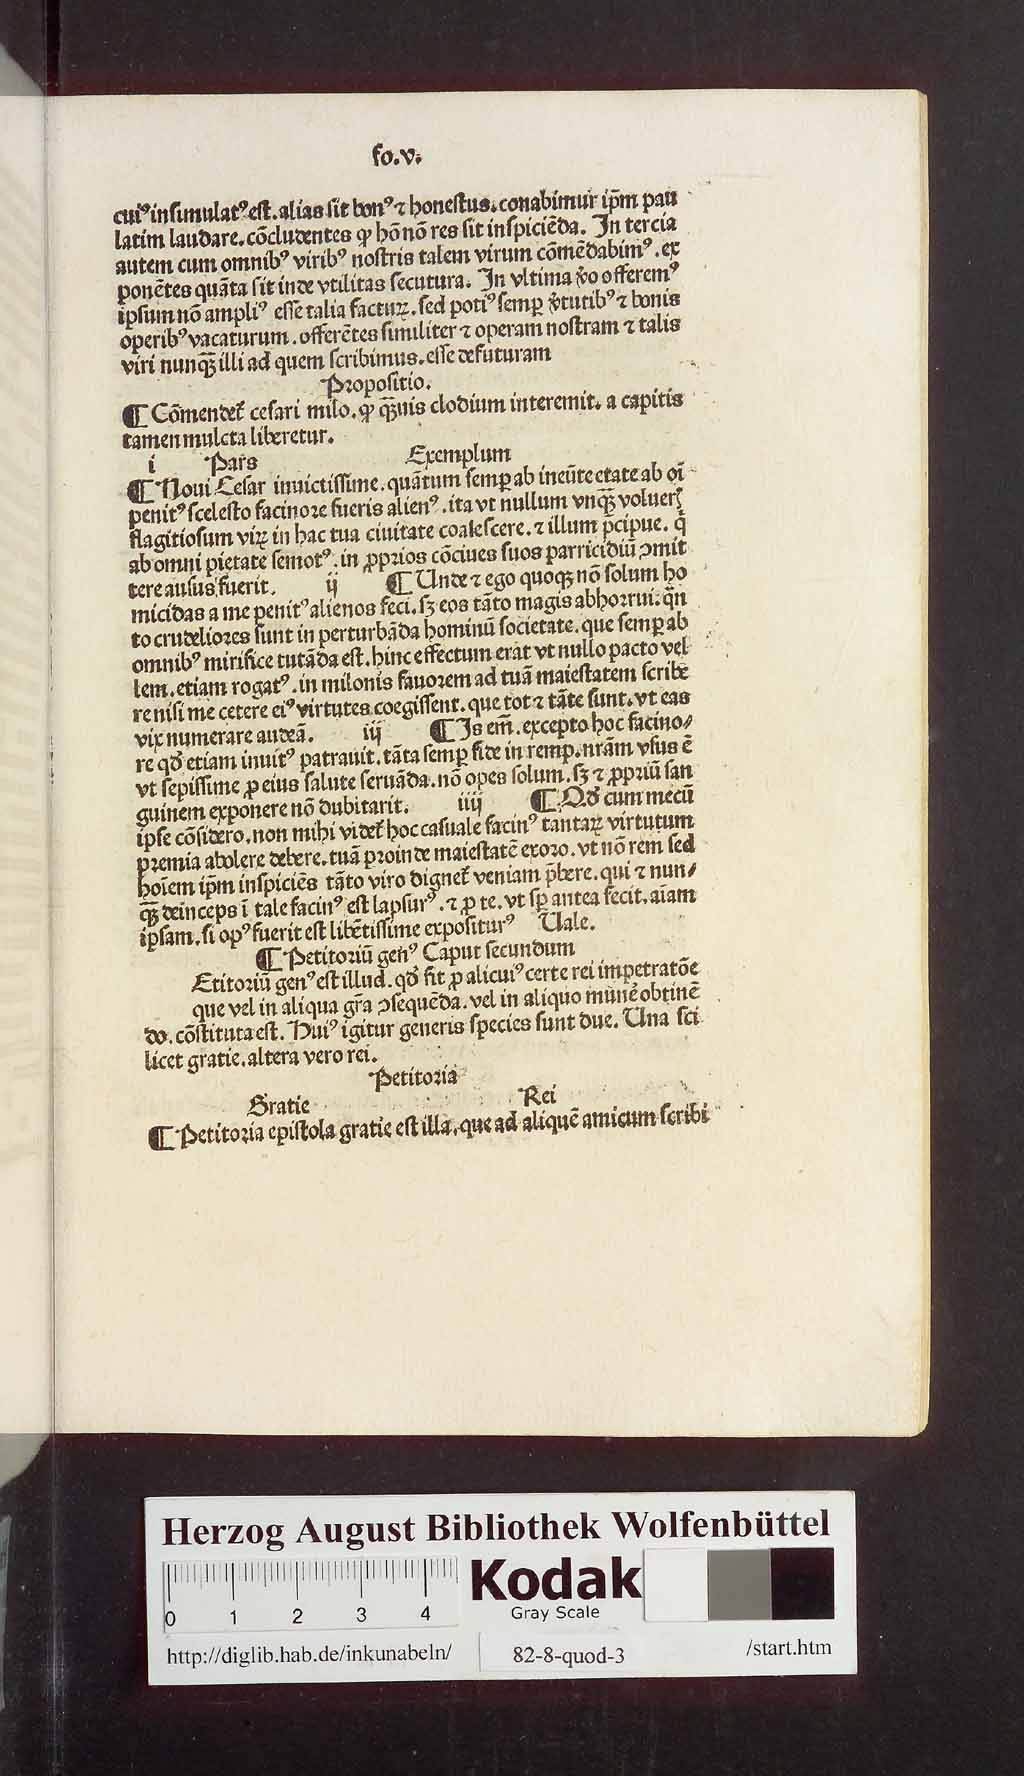 fo.v.
cuiꝰ insimulatꝰ est. alias sit bonꝰ ⁊ honestus. conabimur ip̄m pau
latim laudare. cōcludentes ꝙ hō nō res sit inspiciēda. In tercia
autem cum omnibꝰ viribꝰ nostris talem virum cōmēdabimꝰ. ex
ponētes quāta sit inde vtilitas secutura. In vltima v̊o offeremꝰ
ipsum nō ampliꝰ esse talia facturꝝ. sed potiꝰ semꝑ v̊tutibꝰ ⁊ bonis
operibꝰ vacaturum. offerētes similiter ⁊ operam nostram ⁊ talis
viri nunqꝫ illi ad quem scribimus. esse defuturam
Propositio.
¶ Cōmendet᷑ cesari milo. ꝙ qꝫuis clodium interemit. a capitis
tamen mulcta liberetur.
i Pars Exemplum
¶ Noui Cesar inuictissime. quātum semꝑ ab ineūte etate ab oī
penitꝰ scelesto facinore fueris alienꝰ. ita vt nullum vnqꝫ voluer̄
flagitiosum virꝝ in hac tua ciuitate coalescere. ⁊ illum p̄cipue. q̇
ab omni pietate semotꝰ. in ꝓprios cōciues suos parricidiū ꝯmit
tere ausus fuerit. ij ¶ Unde ⁊ ego quoqꝫ nō solum ho
micidas a me penitꝰ alienos feci. sꝫ eos tāto magis abhorrui. q̄n
to crudeliores sunt in perturbāda hominū societate. que semꝑ ab
omnibꝰ mirifice tutāda est. hinc effectum erat vt nullo pacto vel
lem. etiam rogatꝰ. in milonis fauorem ad tuā maiestatem scribe
re nisi me cetere eiꝰ virtutes coegissent. que tot ⁊ tāte sunt. vt eas
vix numerare audeā. iij ¶ Is em̄. excepto hoc facino⸗
re qd̄ etiam inuitꝰ patrauit. tāta semꝑ fide in remp. nr̄am vsus ē
vt sepissime ꝓ eius salute seruāda. nō opes solum. sꝫ ⁊ ꝓpriū san
guinem exponere nō dubitarit. iiij ¶ Qd̄ cum mecū
ipse cōsidero. non mihi videt᷑ hoc casuale facinꝰ tantarꝝ virtutum
premia abolere debere. tuā proinde maiestatē exoro. vt nō rem sed
hoīem ip̄m inspiciēs tāto viro dignet᷑ veniam p̄bere. qui ⁊ nun⸗
qꝫ deinceps ī tale facinꝰ est lapsurꝰ. ⁊ ꝓ te. vt sꝑ antea fecit. aīam
ipsam. si opꝰ fuerit est libētissime expositurꝰ Uale.
¶ Petitoriū genꝰ Caput secundum
Etitoriū genꝰ est illud. qd̄ fit ꝓ alicuiꝰ certe rei impetratōe
que vel in aliqua gr̄a ꝯsequēda. vel in aliquo mune᷑ obtinē
do. cōstituta est. Huiꝰ igitur generis species sunt due. Una sci
licet gratie. altera vero rei.
Petitoria
Gratie Rei
¶ Petitoria epistola gratie est illa. que ad aliquē amicum scribi
Herzog August Bibliothek Wolfenbüttel
0 1 2 3 4
Kodak
Gray Scale
http://diglib.hab.de/inkunabeln/ 82-8-quod-3 /start.htm